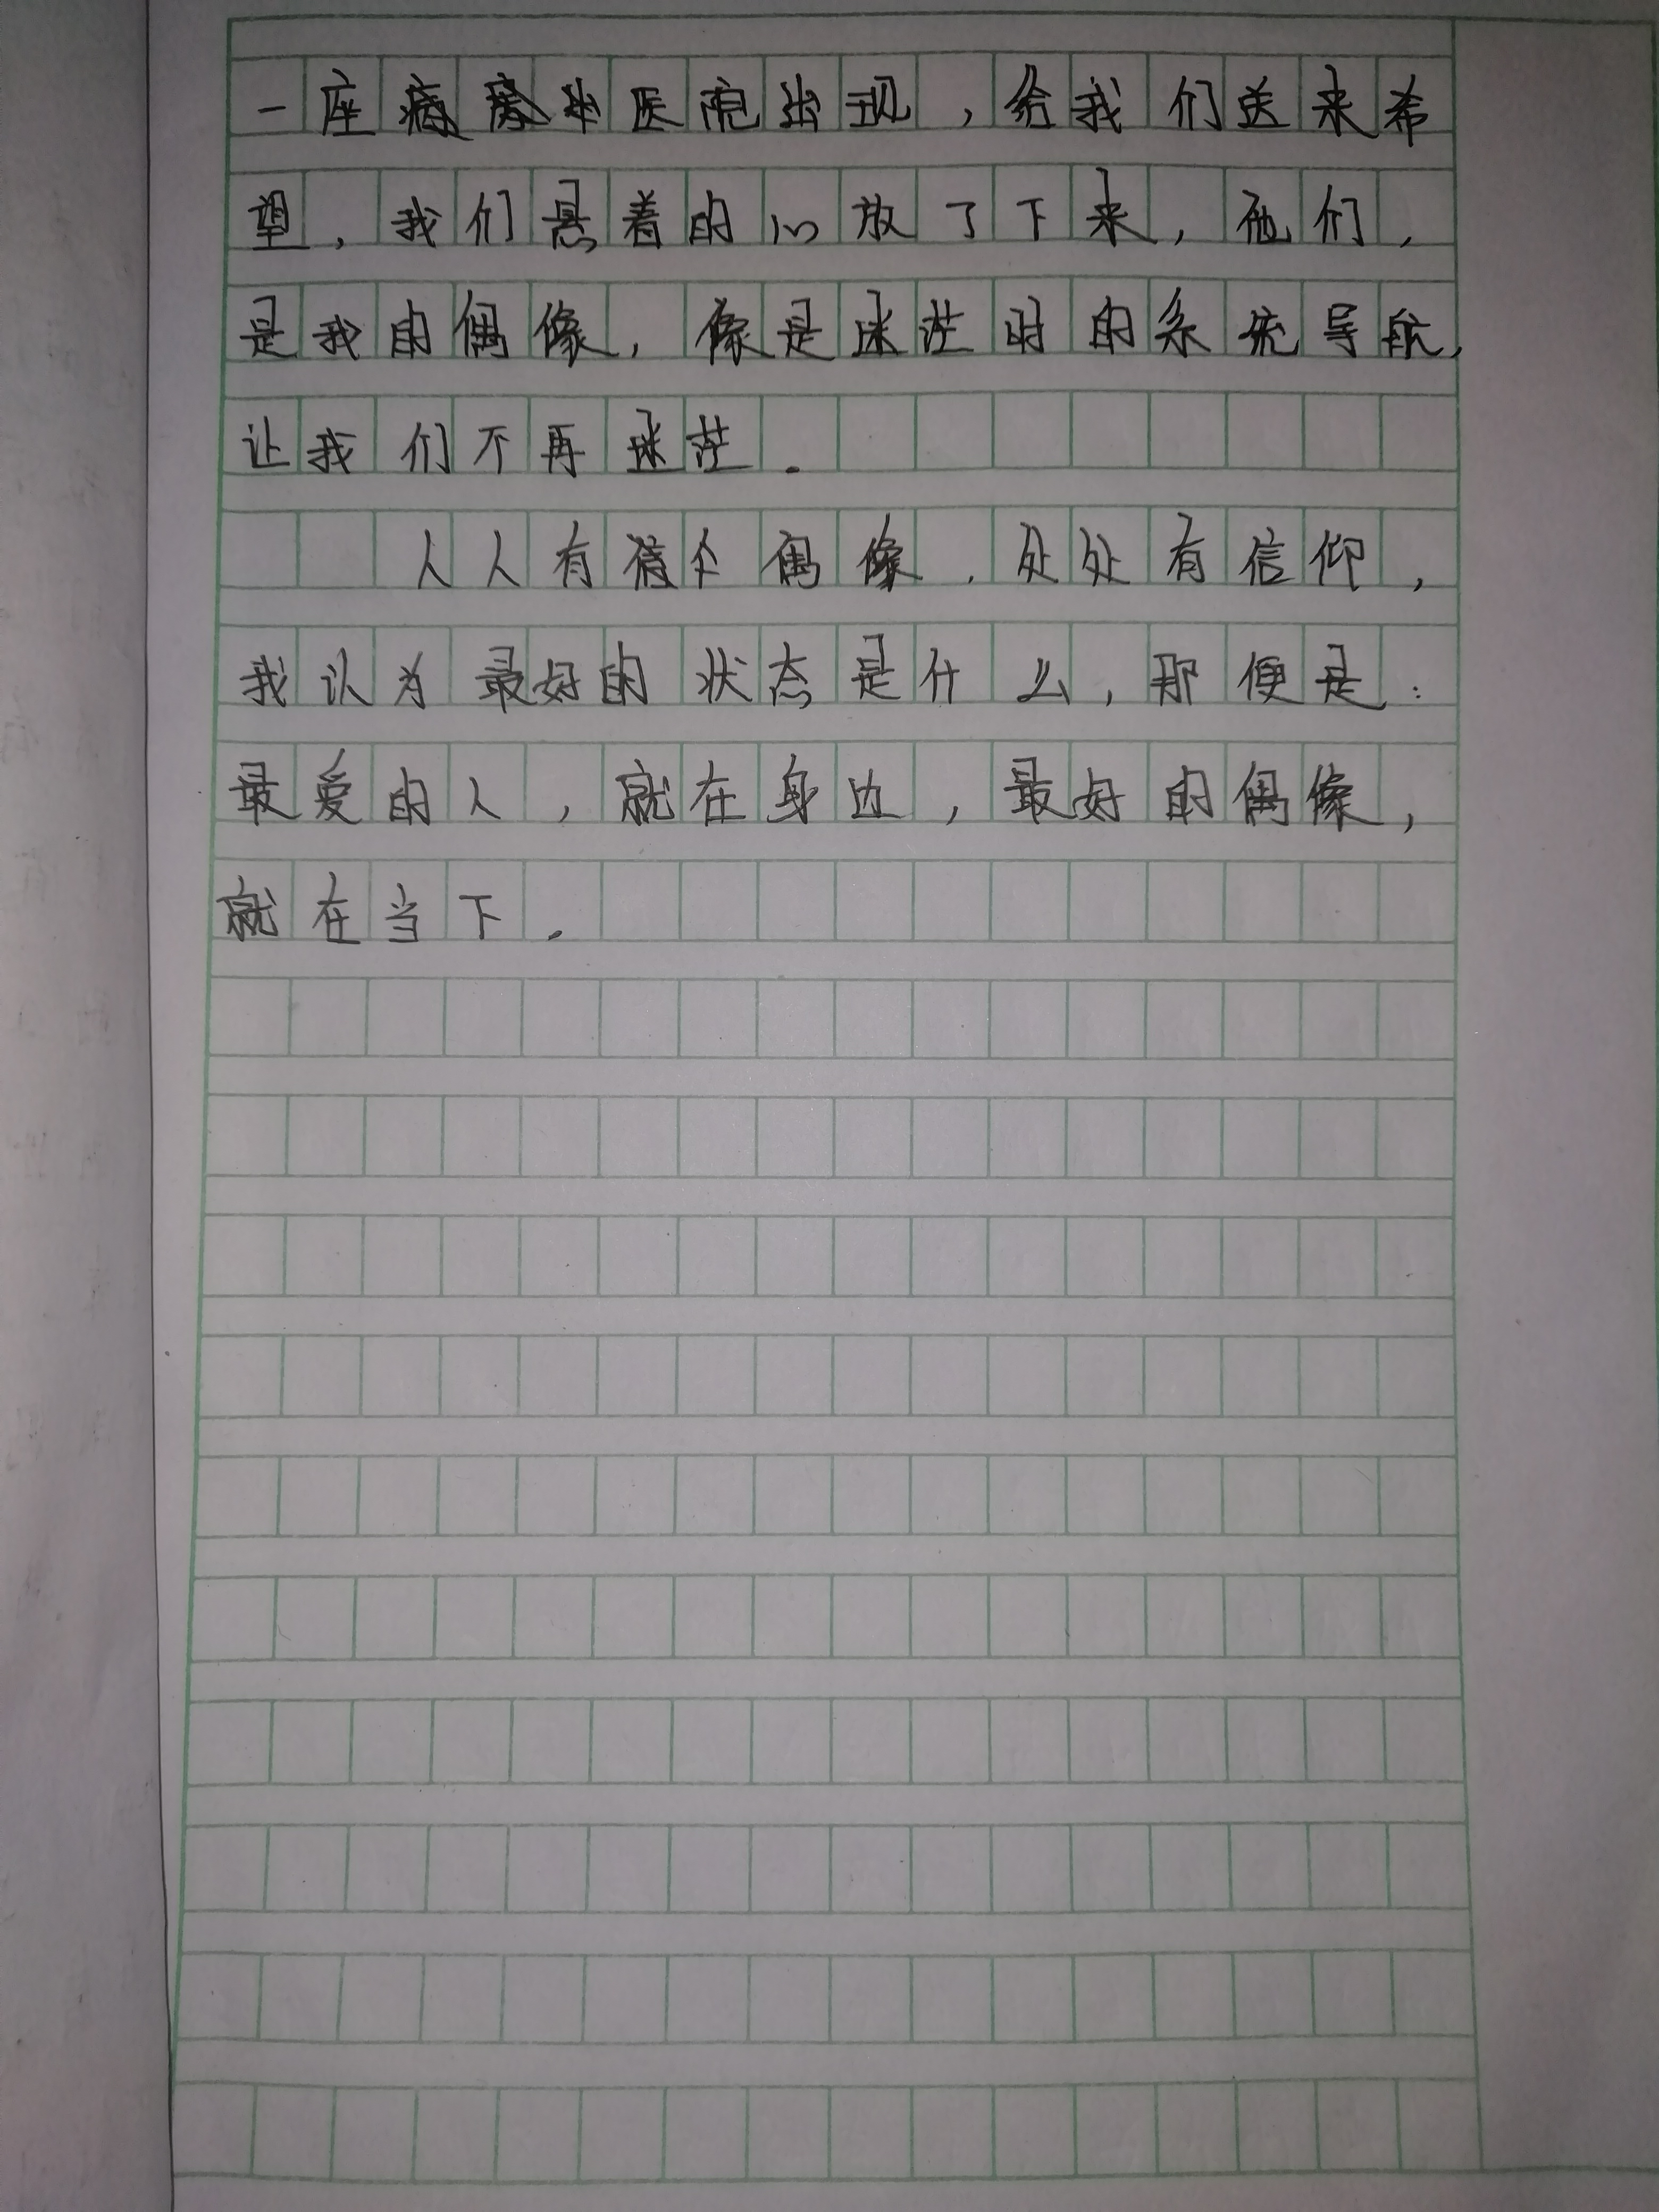 一座座医院出现，给我们送来希
望，我们悬着的心放了下来，他们，
是我的偶像，像是迷茫时的系统导航，
让我们不再迷茫。
人人有偶像，处处有信仰，
我认为最好的状态是什么，那便是：
最爱的人，就在身边，最好的偶像，
就在当下。